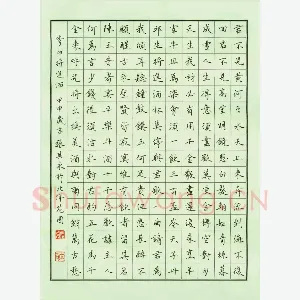 君不見黃河之水天上來奔流到海不復
回君不見高堂明鏡悲白髮朝如青絲暮
成雪人生得意須盡歡莫使金樽空對月
天生我材必有用千金散盡還復來烹羊
宰牛且為樂會須一飲三百杯岑夫子丹
邱生將進酒君莫停與君歌一曲請君為
我傾耳聽鐘鼓饌玉何足貴但願長醉不
願醒古來聖賢皆寂寞惟有飲者留其名
陳王昔時宴平樂斗酒十千恣歡謔主人
何為言少錢徑須沽取對君酌五花馬千
金裘呼兒將出換美酒與爾同銷萬古愁
李白將進酒 甲申歲末 張於北